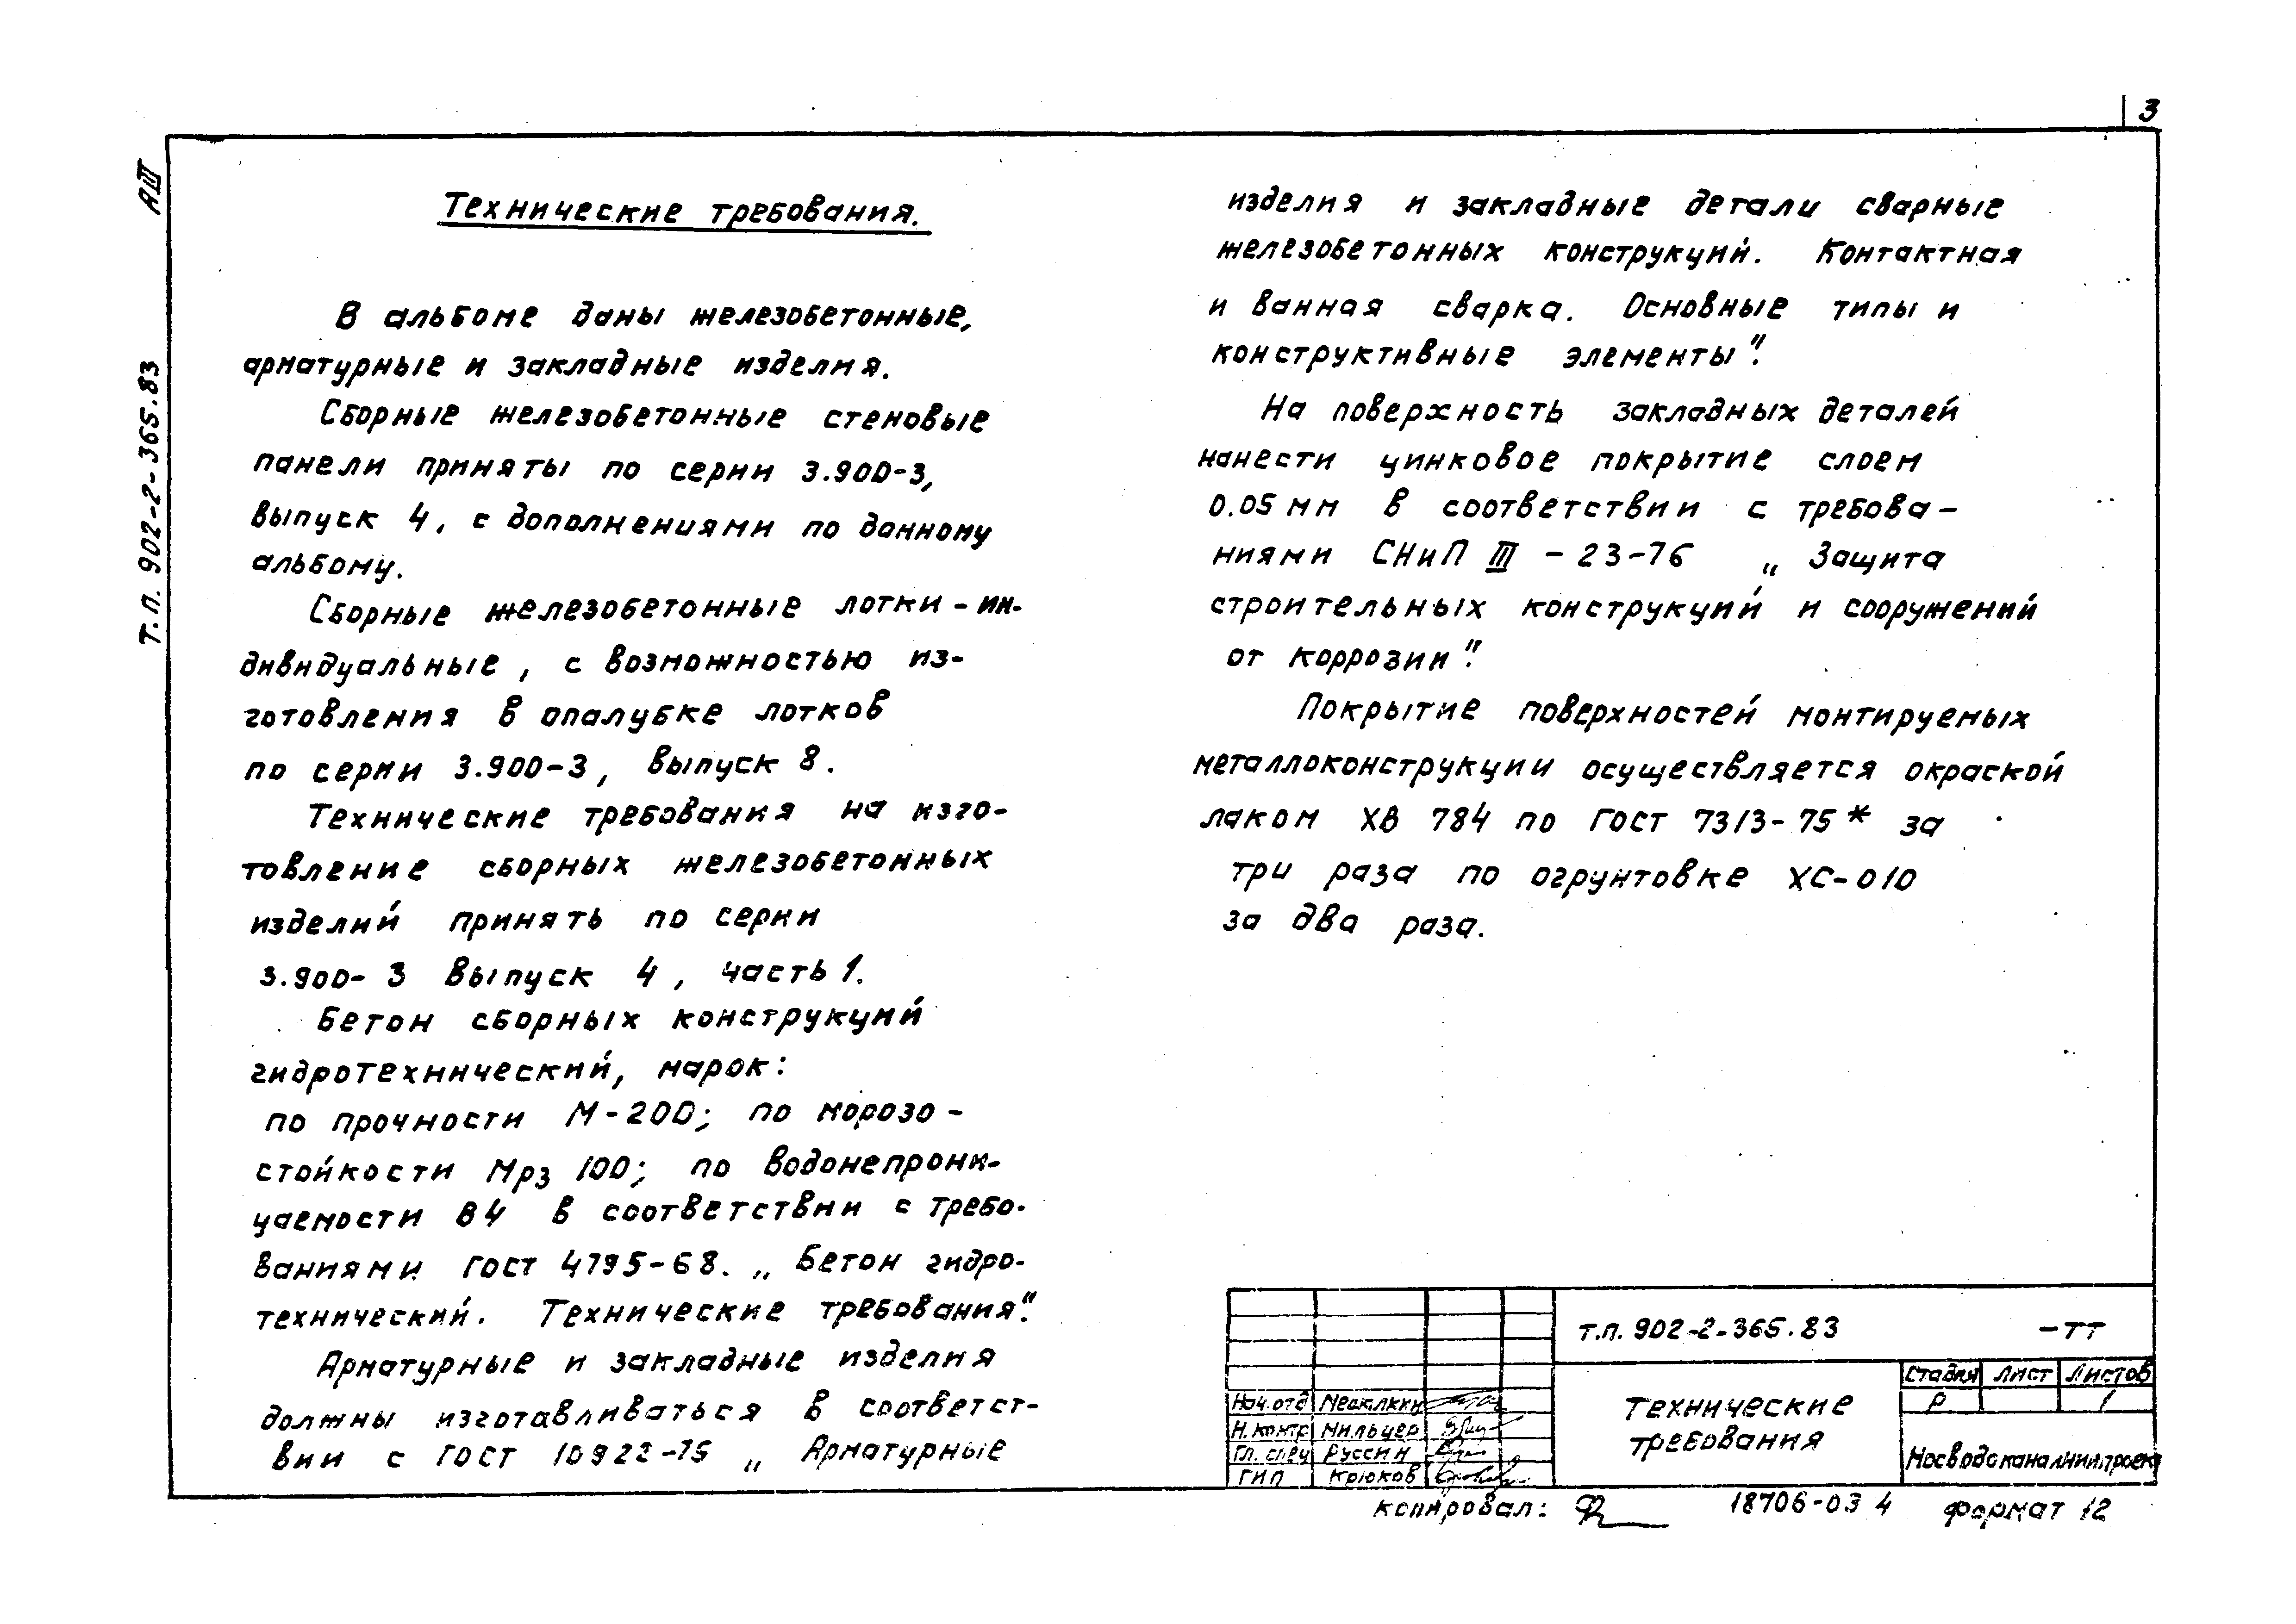 3
АIII
Т.п. 902-2-365.83
Технические требования.
В альбоме даны железобетонные,
арматурные и закладные изделия.
Сборные железобетонные стеновые
панели приняты по серии 3.900-3,
выпуск 4, с дополнениями по данному
альбому.
Сборные железобетонные лотки - ин-
дивидуальные, с возможностью из-
готовления в опалубке лотков
по серии 3.900-3, выпуск 8.
Технические требования на изго-
товление сборных железобетонных
изделий принять по серии
3.900-3 выпуск 4, часть 1.
Бетон сборных конструкций
гидротехнический, марок:
по прочности М-200; по морозо-
стойкости Мрз 100; по водонепрони-
цаемости В4 в соответствии с требо-
ваниями ГОСТ 4795-68. „Бетон гидро-
технический. Технические требования".
Арматурные и закладные изделия
должны изготавливаться в соответст-
вии с ГОСТ 10922-75 „Арматурные
изделия и закладные детали сварные
железобетонных конструкций. Контактная
и ванная сварка. Основные типы и
конструктивные элементы".
На поверхность закладных деталей
нанести цинковое покрытие слоем
0.05 мм в соответствии с требова-
ниями СНиП III - 23-76 „Защита
строительных конструкций и сооружений
от коррозии".
Покрытие поверхностей монтируемых
металлоконструкции осуществляется окраской
лаком ХВ 784 по ГОСТ 7313-75* за
три раза по огрунтовке ХС-010
за два раза.
т.п. 902-2-365.83 -ТТ
Стадия Лист Листов
Р 1
Технические
требования
Мосводоканалниипроект
Нач.отд
Н.контр Мильчер
Гл. спец Руссин
ГИП Крюков
копировал: 18706-03 4 Формат 12